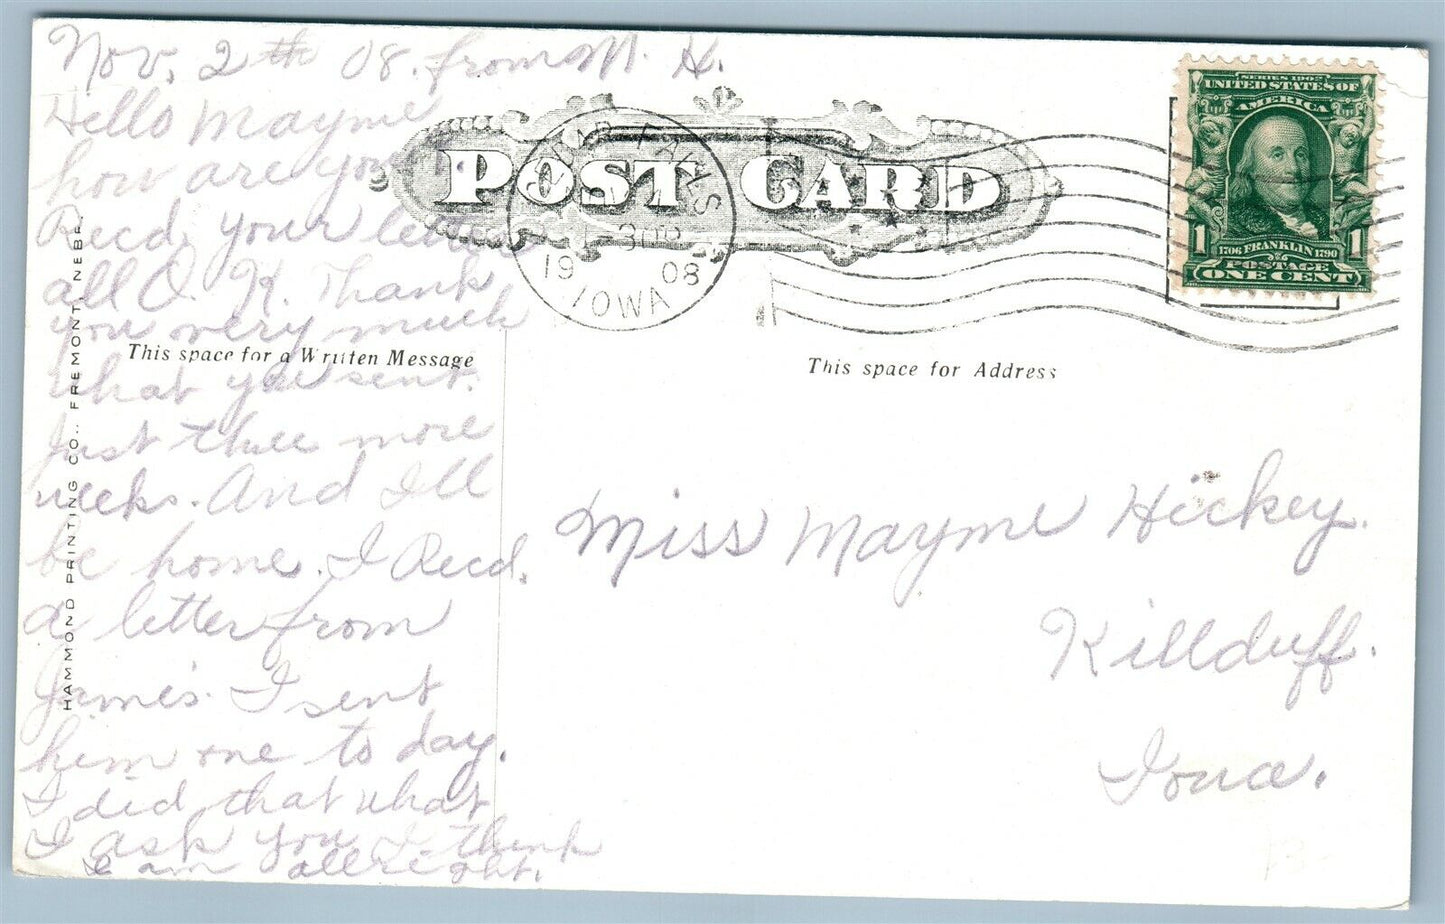 Nov, 2th 08. from M. H.
Hello Mayme
how are you
Recd, your letter
all O. K. Thank
you very much
what you sent.
Just three more
weeks. And I'll
be home. I Recd.
a letter from
James. I sent
him one to day.
I did that what
I ask you I think
I am allright.
HAMMOND PRINTING CO., FREMONT, NEBR.
This space for a Written Message
POST CARD
FALLS
3
1908
IOWA
SERIES 1902
UNITED STATES OF
AMERICA
1 1706 FRANKLIN 1790 1
POSTAGE
ONE CENT
This space for Address
Miss Mayme Hickey.
Killduff.
Iowa.